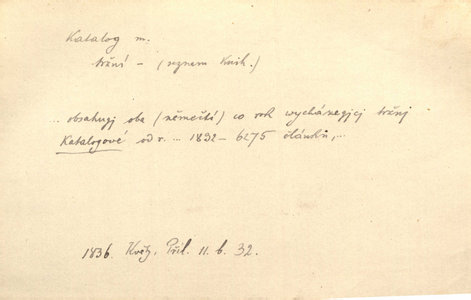 Katalog m.
tržní – (seznam knih.)
... obsahugj oba (němečtí) co rok wycházegjcj tržnj
Katalogové od r. ... 1832 – 6275 článků, ...
1836. Květy, Příl. 11. b. 32.